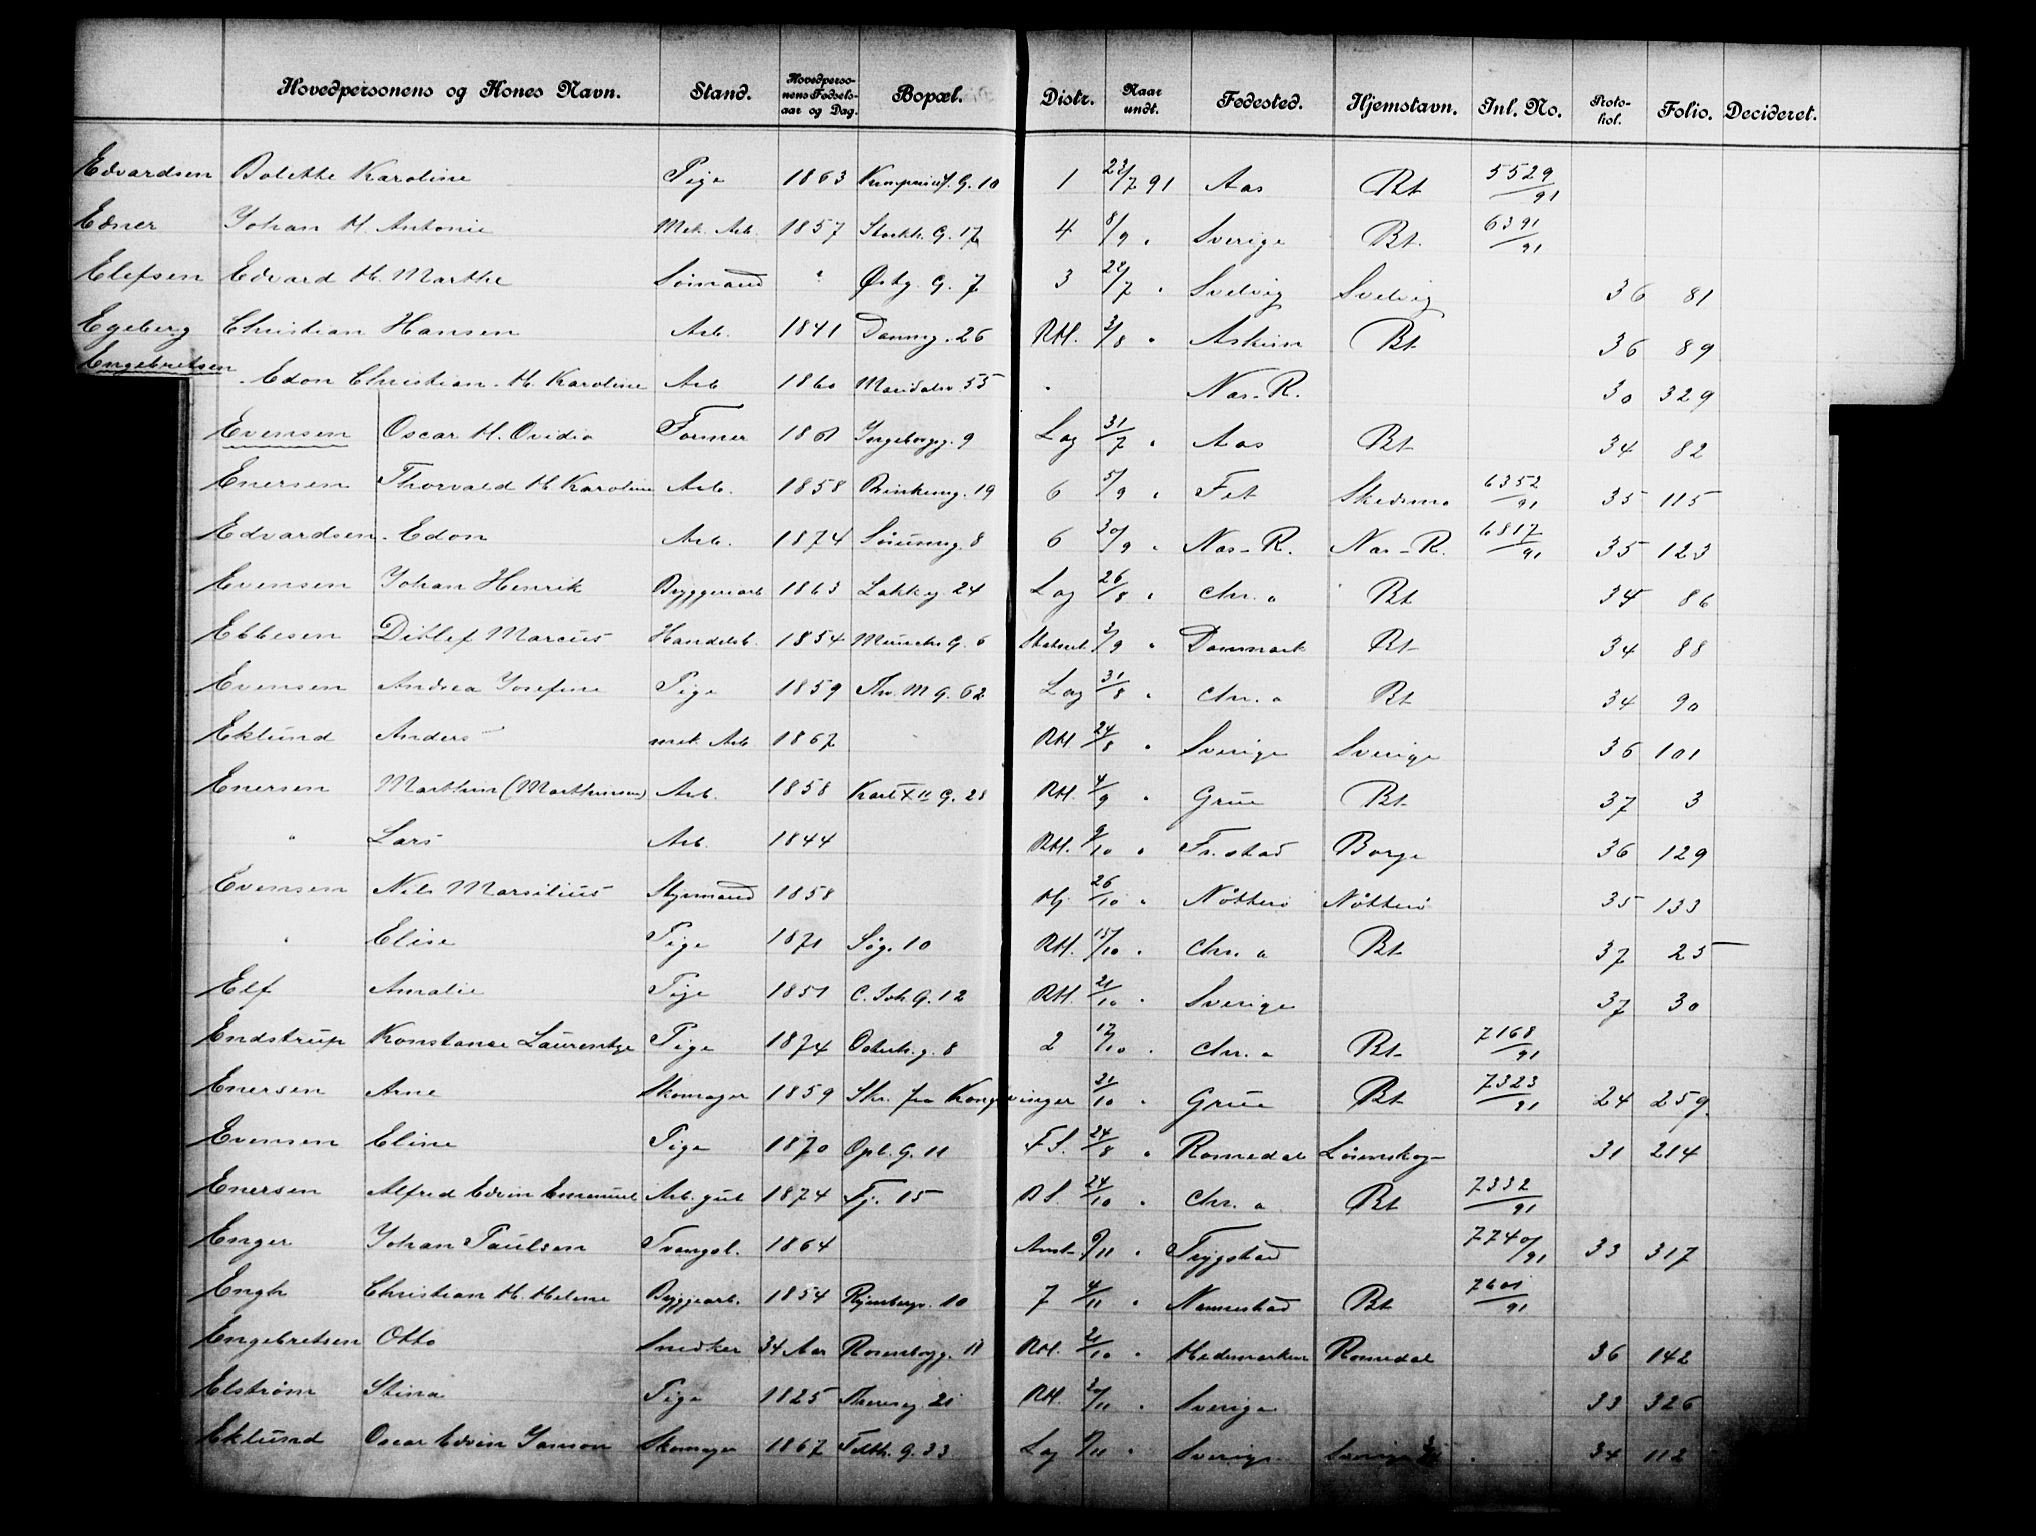 Hovedpersonens og Kones Navn. Stand. Hovedpersonens Fødselsaar og Dag. Bopæl. Distr. Naar undt. Fødested. Hjemstavn. Inl. No. Protokol. Folio. Decideret.
Edvardsen Bolette Karoline Pige 1863 G. 10 1 23/7 91 Aas Bt 5529/91
Edner Johan M. Antonie Mek. Arb. 1857 Stockh. G. 17 4 8/9 " Sverige Bt. 6391/91
Elefsen Edvard M. Marthe Sømand " Østg. G. 7 3 28/7 " Svelvig Svelvig 36 81
Egeberg Christian Hansen Arb. 1841 Danmg. 26 RM. 3/8 " Askim Bt 36 89
Engebretsen Edon Christian M. Karoline Arb 1860 Maridalsv. 55 " Nas-R. 30 329
Evensen Oscar M. Ovidia Former 1861 Ingeborgg. 9 Lag 31/7 " Aas Bt 34 82
Enersen Thorvald M. Karoline Arb. 1858 Birkeng. 19 6 5/9 " Fet Skedsmo 6352/91 35 115
Edvardsen Edon Arb. 1874 Sørumg. 8 6 30/9 " Nas-R. Nas-R. 6817/91 35 123
Evensen Johan Henrik Bryggeriarb 1863 Lakkeg 24 Lag 26/8 " Chr.a Bt 34 86
Ebbesen Ditlef Marcus Handelsb. 1854 Munchs G. 6 2/9 " Danmark Bt 34 88
Evensen Andrea Josefine Pige 1859 Thv. M G. 62 Lag 31/8 " Chr.a Bt 34 90
Eklund Anders mek. Arb 1867 RM 24/8 " Sverige Sverige 36 101
Enersen Marthin (Marthinsen) Arb. 1858 Karl XII G. 28 RM. 4/9 " Grue Bt 37 3
" Lars Arb. 1844 RM. 9/10 " Fr.stad Borge 36 129
Evensen Nils Marsilius Styrmand 1858 Hj 26/10 " Nøtterø Nøtterø 35 133
" Elise Pige 1871 Søg. 10 RM. 15/10 " Chr.a Bt 37 25
Elf Amalie Pige 1851 C. Joh. G. 12 RM. 21/10 " Sverige 37 30
Endstrup Konstance Laurentze Pige 1874 Osterh. g. 8 2 17/10 " Chr.a Bt 7168/91
Enersen Arne Skomager 1859 Skr. fra Kongsvinger 21/10 " Grue Bt 7323/91 24 259
Evensen Eline Pige 1870 Opl. G. 11 F.S. 24/8 " Romedal Lørenskog 31 214
Enersen Alfred Edvin Emanuel Arb. gut 1874 Fj. 15 B S. 24/10 " Chr.a Bt 7332/91
Enger Johan Paulsen Tvangsl. 1864 Anst. 9/11 " Trygstad 7740/91 33 317
Engh Christian M. Helene Byggearb. 1854 Ryenbergv. 10 7 4/11 " Nannestad Bt 7601/91
Engebretsen Otto Snedker 34 Aar Rosenborgg. 18 RM. 21/10 " Hedemarken Romedal 36 142
Elstrøm Stina Pige 1825 Theresg 21 RM. 2/11 " Sverige 33 326
Eklund Oscar Edvin Janson Skomager 1867 Toldb. G. 33 Lag 9/11 " Sverige Sverige 34 112